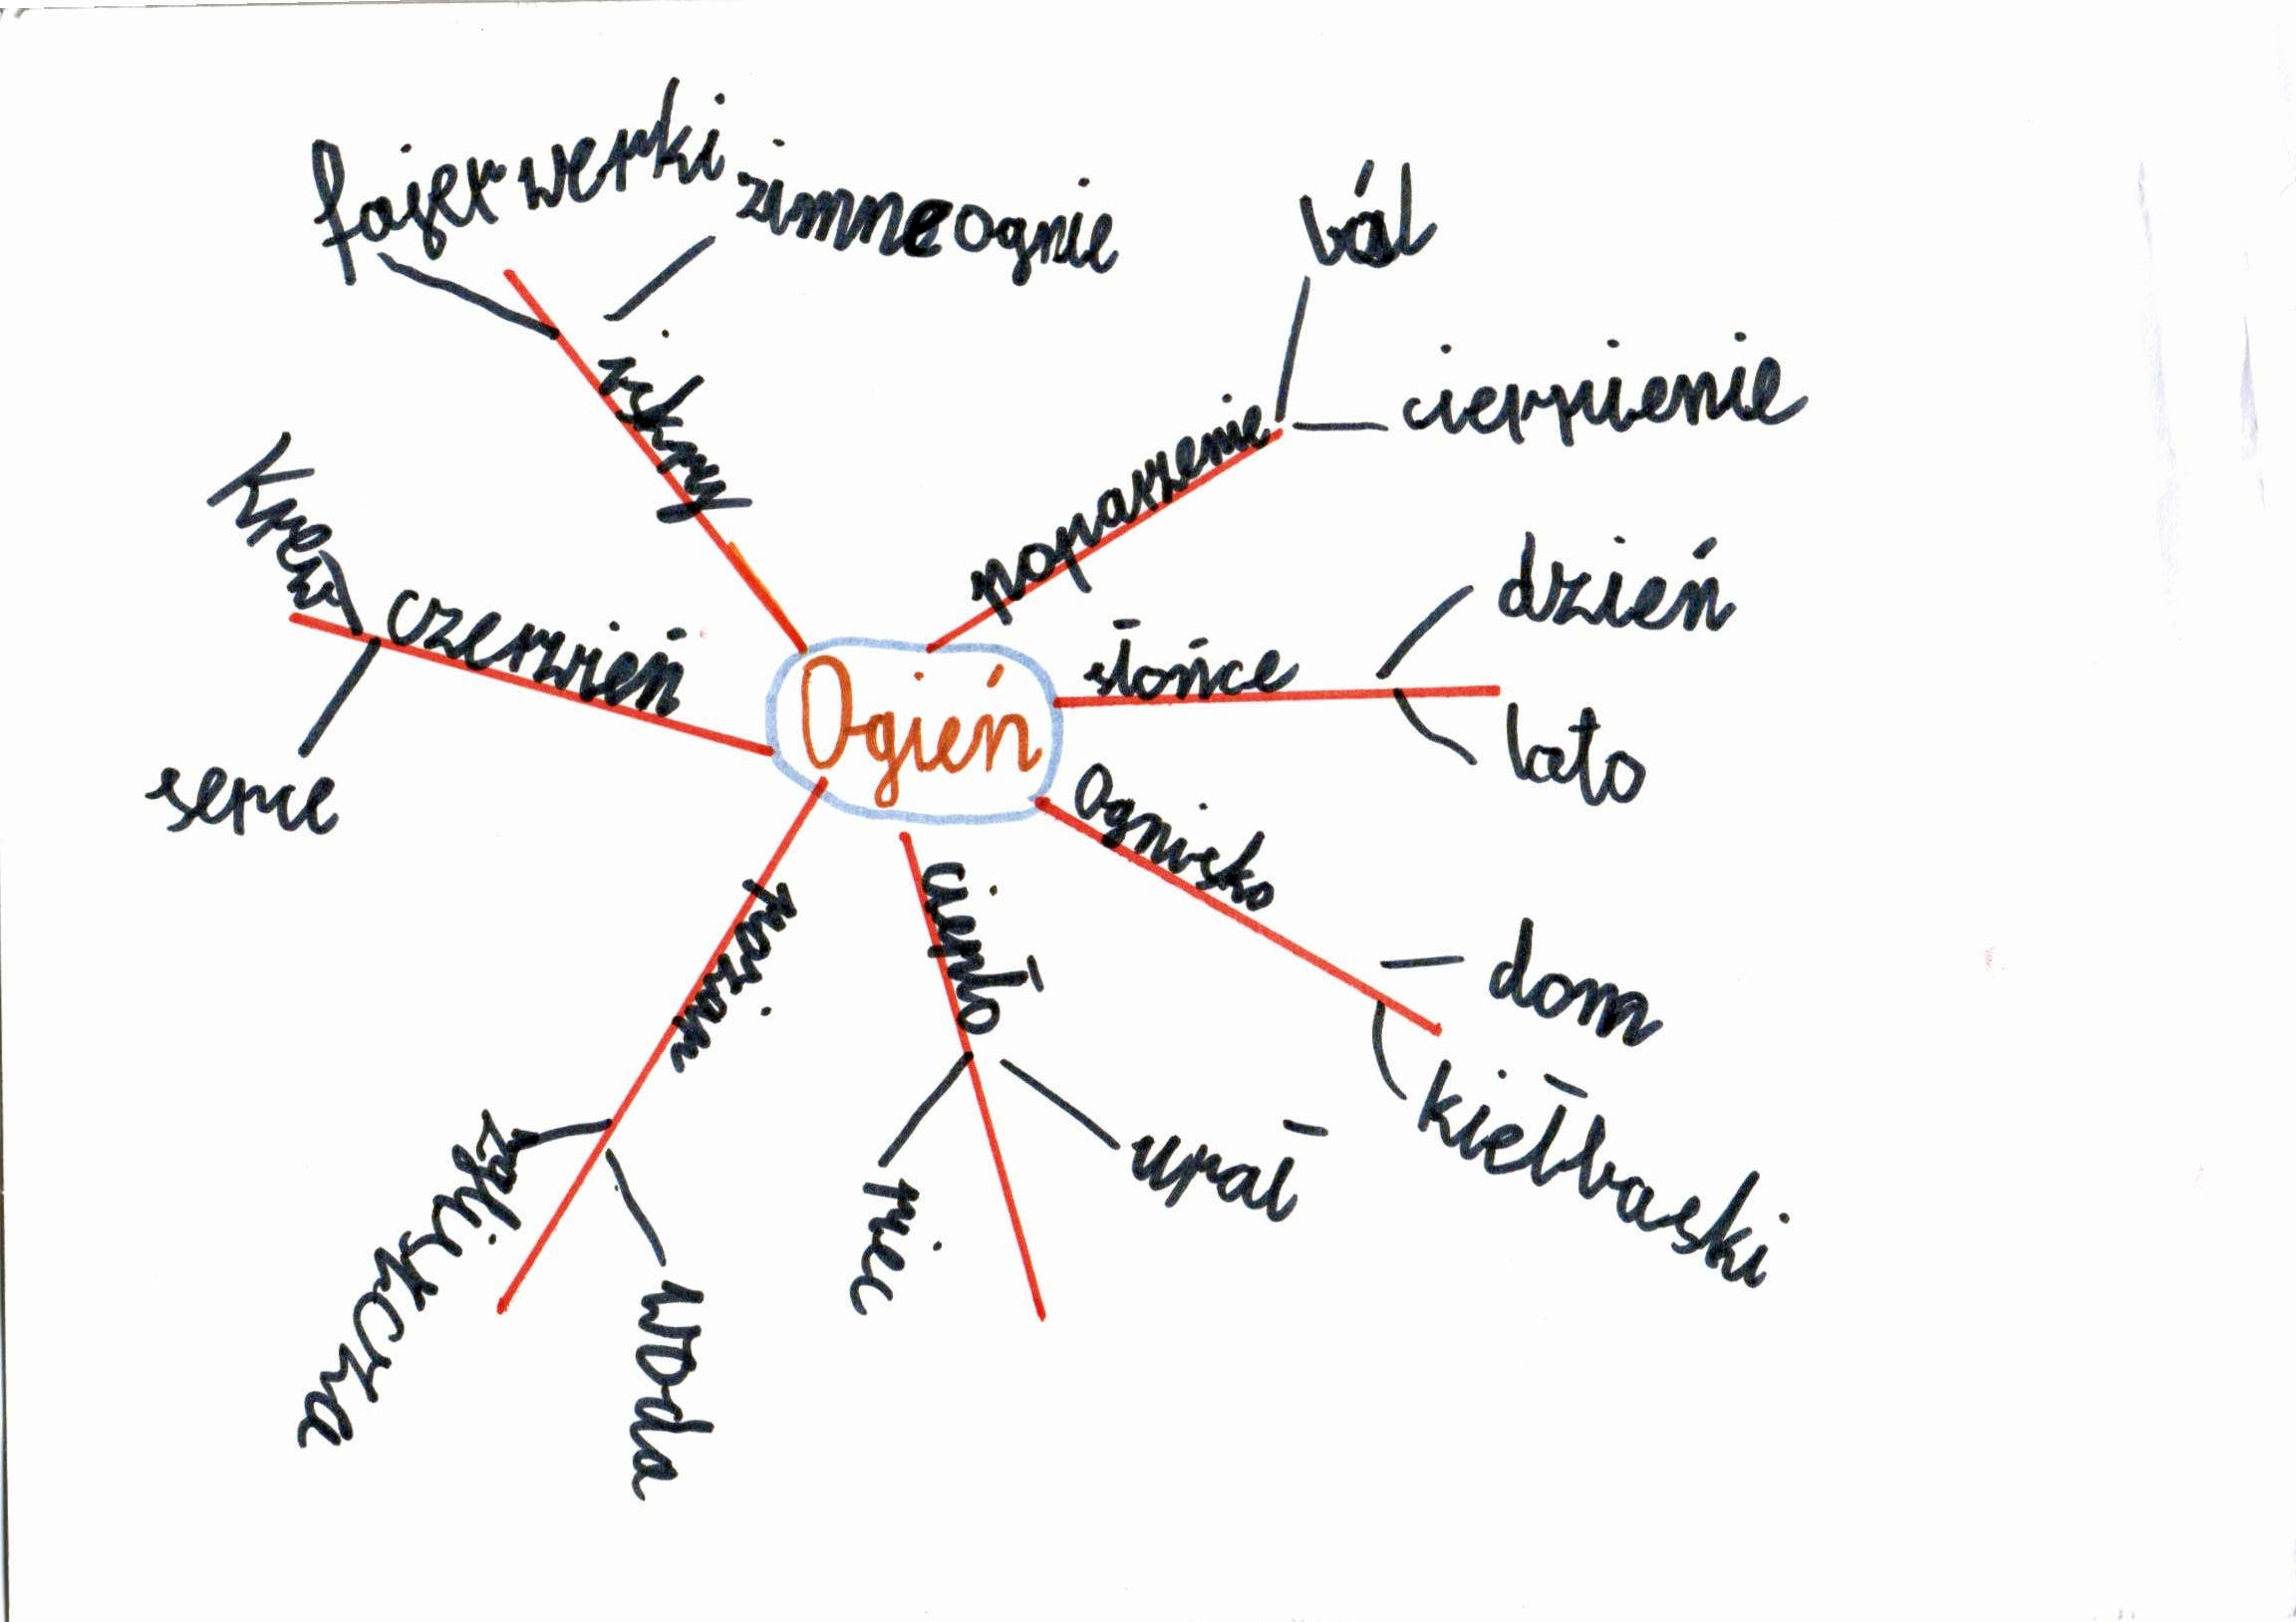 fajerwerki
zimne ognie
iskry
ból
cierpienie
poparzenie
słońce
dzień
lato
Ognisko
dom
kiełbaski
ciepło
upał
piec
pożar
woda
zgliszcza
czerwień
Krew
serce
Ogień